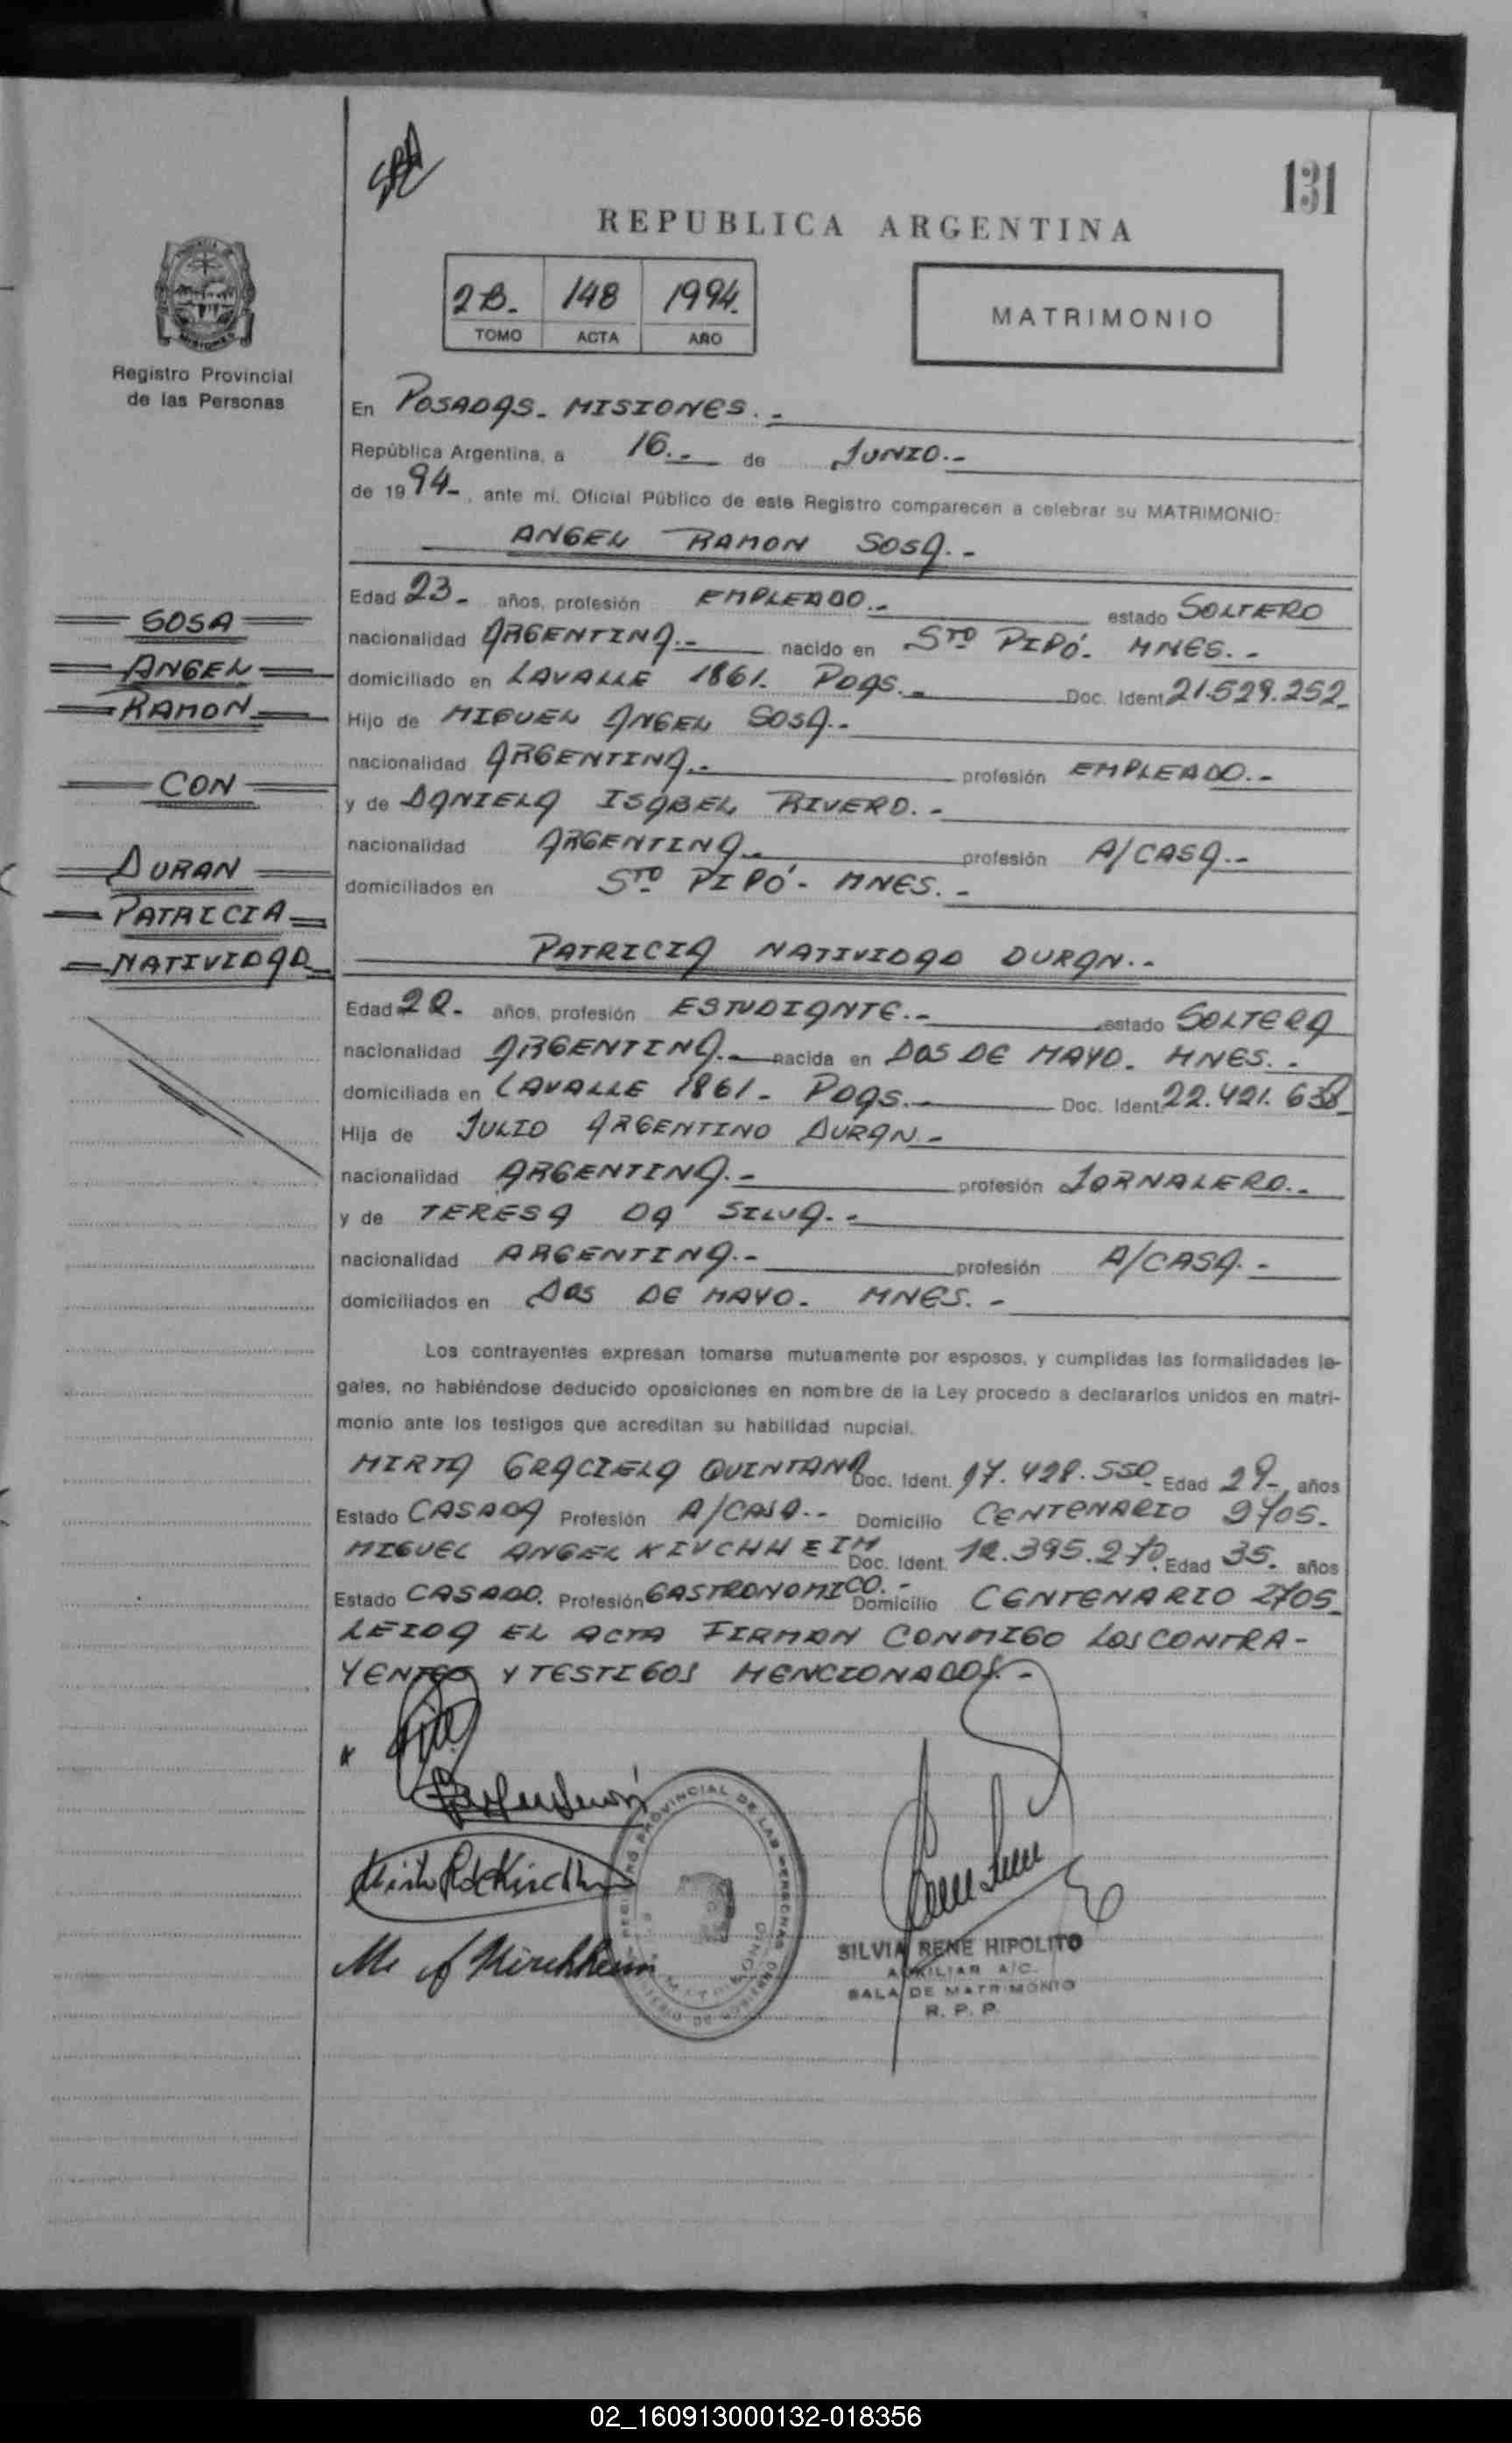 131
REPUBLICA ARGENTINA
2B.- 148 1994.
TOMO ACTA AÑO
MATRIMONIO
Registro Provincial
de las Personas
SOSA
ANGEL
RAMON
CON
DURAN
PATRICIA
NATIVIDAD
En POSADAS.- MISIONES.-
República Argentina, a 16.- de JUNIO.-
de 1994-, ante mí, Oficial Público de este Registro comparecen a celebrar su MATRIMONIO:
ANGEL RAMON SOSA.-
Edad 23- años, profesión EMPLEADO.- estado SOLTERO
nacionalidad ARGENTINA.- nacido en STO PIPÓ- MNES.-
domiciliado en LAVALLE 1861. PDAS.- Doc. Ident. 21.529.252-
Hijo de MIGUEL ANGEL SOSA.-
nacionalidad ARGENTINA.- profesión EMPLEADO.-
y de DANIELA ISABEL RIVERO.-
nacionalidad ARGENTINA.- profesión A/CASA.-
domiciliados en STO PIPÓ- MNES.-
PATRICIA NATIVIDAD DURAN.-
Edad 22- años, profesión ESTUDIANTE.- estado SOLTERA
nacionalidad ARGENTINA.- nacida en DOS DE MAYO- MNES.-
domiciliada en LAVALLE 1861- PDAS.- Doc. Ident. 22.421.638
Hija de JULIO ARGENTINO DURAN-
nacionalidad ARGENTINA.- profesión JORNALERO.-
y de TERESA DA SILVA.-
nacionalidad ARGENTINA.- profesión A/CASA.-
domiciliados en DOS DE MAYO- MNES.-
Los contrayentes expresan tomarse mutuamente por esposos, y cumplidas las formalidades le-
gales, no habiéndose deducido oposiciones en nombre de la Ley procedo a declararlos unidos en matri-
monio ante los testigos que acreditan su habilidad nupcial.
MIRTA GRACIELA QUINTANA Doc. Ident. 17.428.550- Edad 29- años
Estado CASADA Profesión A/CASA.- Domicilio CENTENARIO 2705-
MIGUEL ANGEL KIVCHHEIM Doc. Ident. 12.395.270. Edad 35. años
Estado CASADO. Profesión GASTRONOMICO.- Domicilio CENTENARIO 2705-
LEIDA EL ACTA FIRMAN CONMIGO LOS CONTRA-
YENTES Y TESTIGOS MENCIONADOS.-
REGISTRO PROVINCIAL DE LAS PERSONAS
SILVIA RENE HIPOLITO
AUXILIAR A/C.
SALA DE MATRIMONIO
R. P. P.
02_160913000132-018356